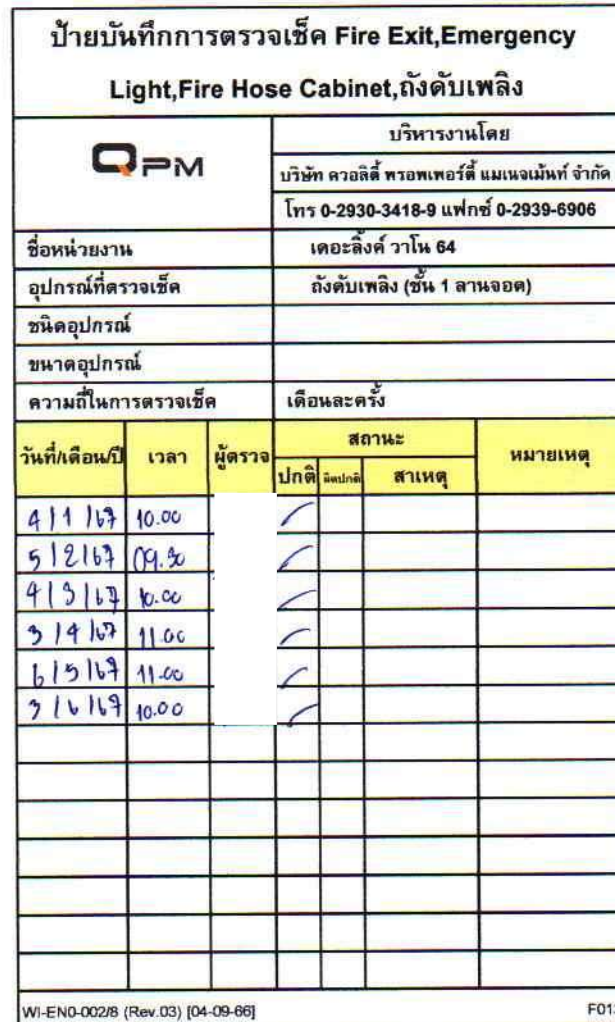 ป้ายบันทึกการตรวจเช็ค Fire Exit,Emergency
Light,Fire Hose Cabinet,ถังดับเพลิง
QPM
บริหารงานโดย
บริษัท ควอลิตี้ พรอพเพอร์ตี้ แมเนจเม้นท์ จำกัด
โทร 0-2930-3418-9 แฟกซ์ 0-2939-6906
ชื่อหน่วยงาน เดอะลิ้งค์ วาโน 64
อุปกรณ์ที่ตรวจเช็ค ถังดับเพลิง (ชั้น 1 ลานจอด)
ชนิดอุปกรณ์
ขนาดอุปกรณ์
ความถี่ในการตรวจเช็ค เดือนละครั้ง
วันที่/เดือน/ปี เวลา ผู้ตรวจ สถานะ หมายเหตุ
ปกติ ผิดปกติ สาเหตุ
4/1/67 10.00
5/2/67 09.30
4/3/67 10.00
3/4/67 11.00
6/5/67 11.00
3/6/67 10.00
WI-EN0-002/8 (Rev.03) [04-09-66]